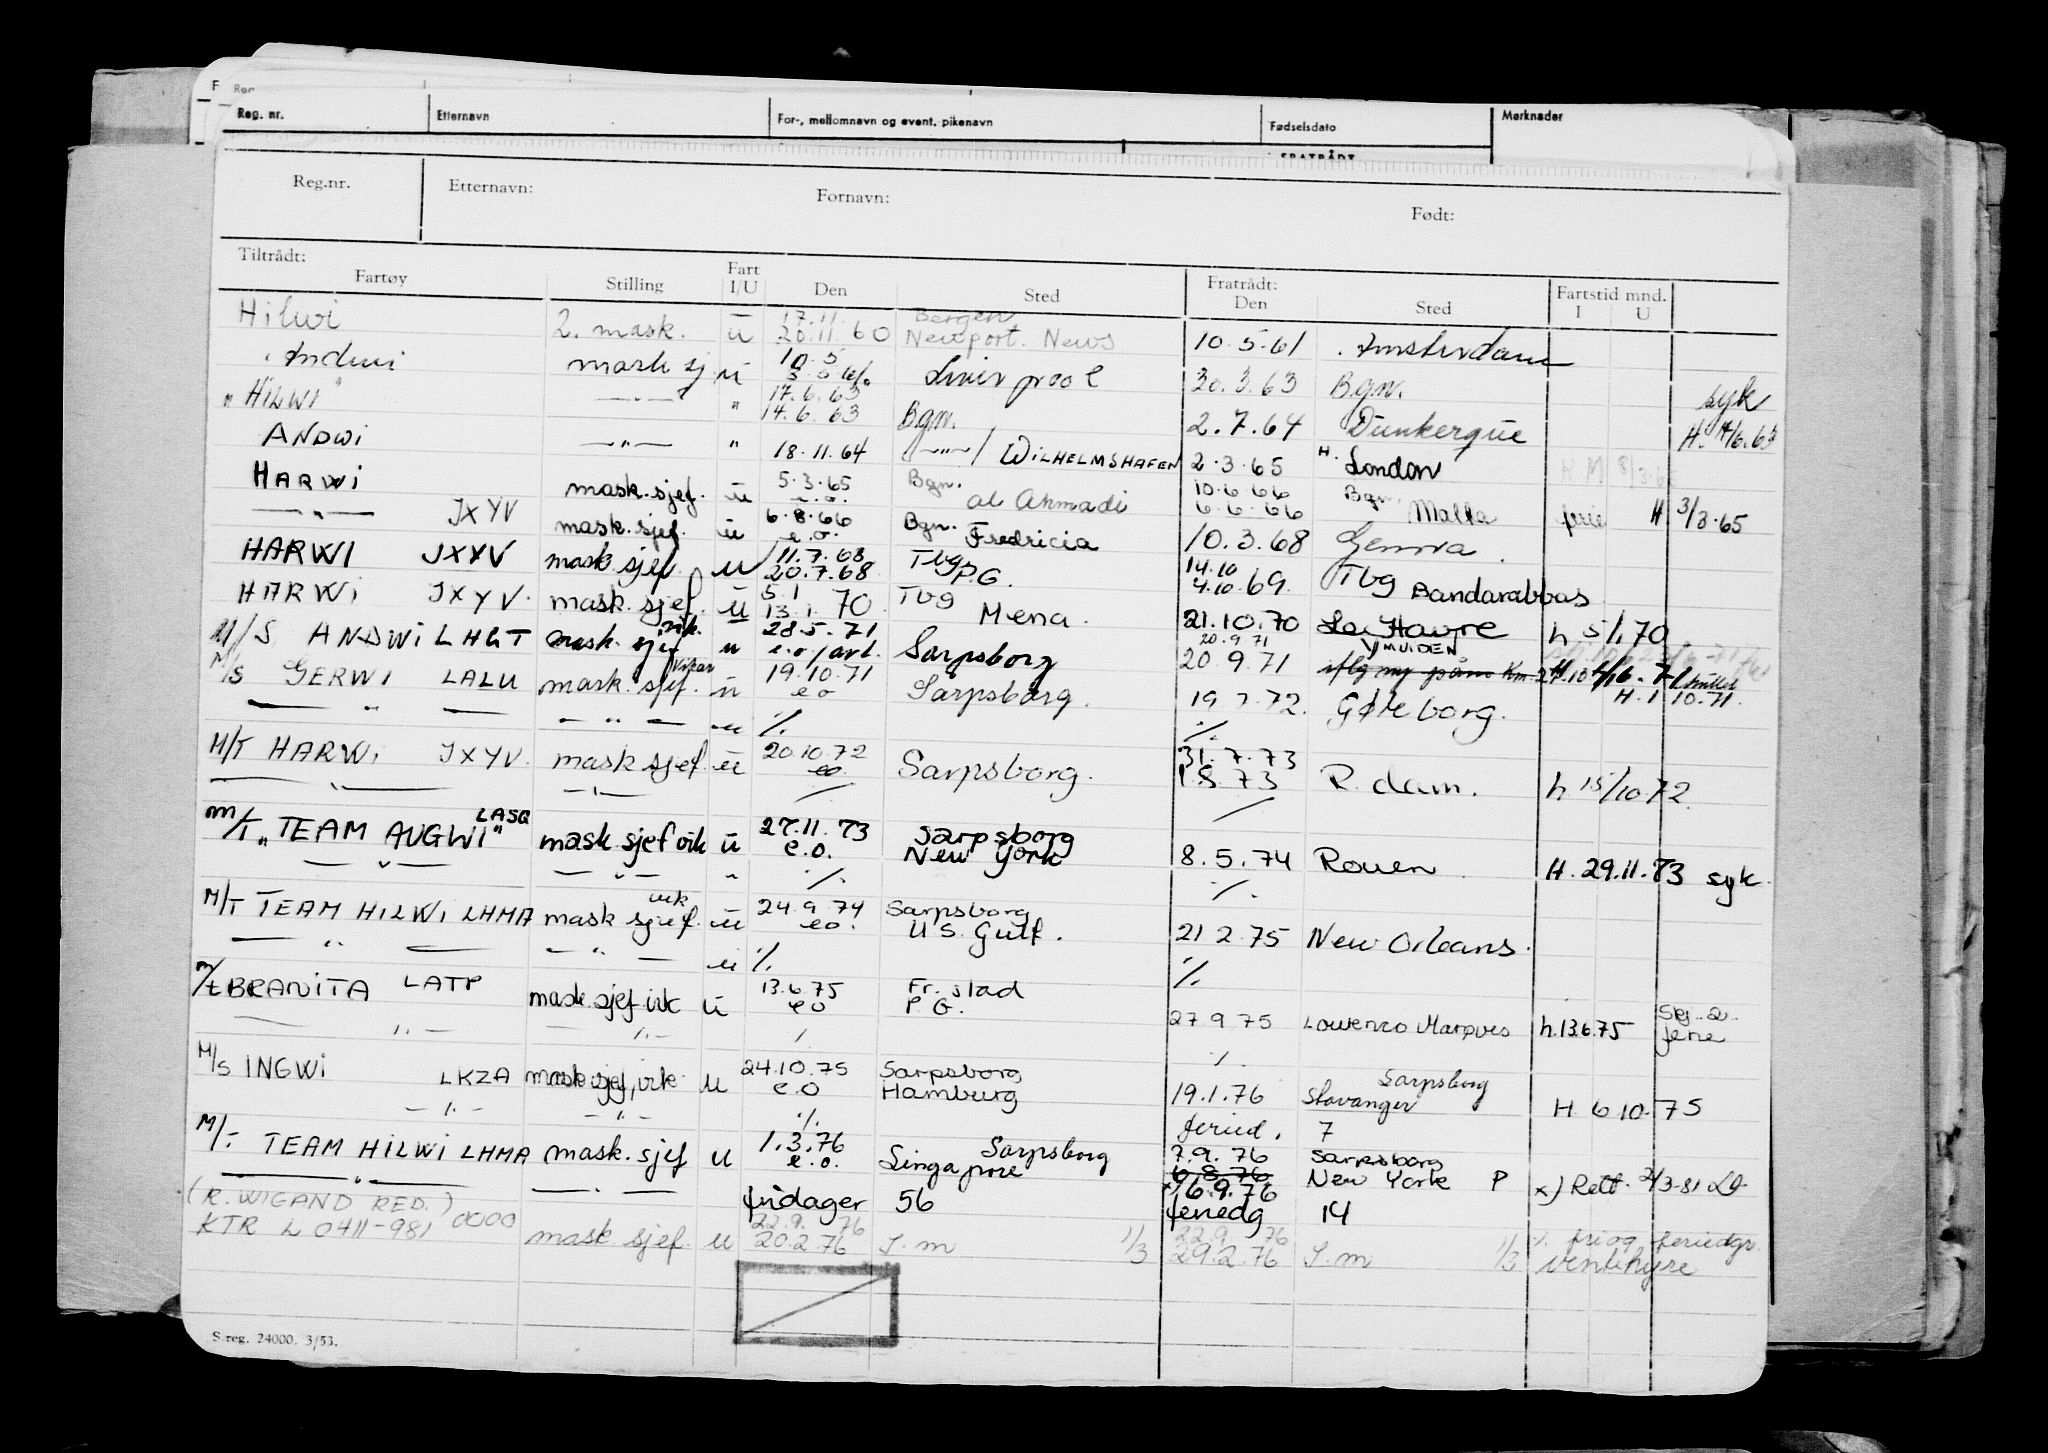 Reg. nr. Etternavn For-, mellomnavn og event. pikenavn Fødselsdato Merknader
FRATRÅDT
Reg.nr. Etternavn: Fornavn: Født:
Tiltrådt: Fratrådt:
Fartøy Stilling Fart I/U Den Sted Den Sted Fartstid mnd. I U
17.11 Bergen
Hilwi 2. mask. u 20.11.60 Newport. News 10.5.61 Amsterdam
10.5
Andwi mask sj u Liverpool 20.3.63 Bgn. syk
17.6.63
" HILWI " —"— " 14.6.63 Bgn. 2.7.64 Dunkerque H. 14/6.63
ANDWI —"— " 18.11.64 /—"—/ WILHELMSHAFEN 2.3.65 H. London
5.3.65 Bgn. 10.6.66 Bgn.
HARWI mask.sjef. u e.o. al Ahmadi 6.6.66 Malta ferie H 3/3.65
6.8.66 Bgn.
—"— JXYV mask.sjef. u e.o. Fredricia 10.3.68 Genova.
11.7.68 Tbg 14.10
HARWI JXYV mask sjef. u 20.7.68 P.G. 4.10.69. Tbg Bandarabbas
5.1 Tbg
HARWI JXYV. mask. sjef. u 13.1.70 Mena. 21.10.70 Le Havre h 5/1.70
28.5.71 20.9.71 YMUIDEN
M/S ANDWI LHGT mask. sjef vik. u e.o/avl. Sarpsborg 20.9.71
M/S GERWI LALU mask. sjef. vikar u 19.10.71 e o Sarpsborg. 19.7.72. Gøteborg. H. 1 10.71.
— " — — " — u ·/. ·/.
20.10.72 31.7.73
M/T HARWI JXYV. mask sjef. u eo. Sarpsborg. 1.8.73 R. dam. h. 15/10.72.
— " — —"— / /
LASQ 27.11.73 Sarpsborg
M/T "TEAM AUGWI" mask sjef vik u e.o. New York 8.5.74 Rouen H. 29.11.73 syk.
— " — — " — " ·/. ·/.
vik 24.9.74 Sarpsborg
M/T TEAM HILWI LHMA mask sjef. u eo. U S. Gulf. 21 2.75 New Orleans.
— " — — " — u ·/. ·/.
13.6.75 Fr. stad
M/T BRANITA LATP mask.sjef vik u eo P G. 27 9.75 Lourenco Marques h.13.6.75 ferie
— " — — " — / ·/.
24.10.75 Sarpsborg Sarpsborg
M/S INGWI LKZA mask.sjef, vik u e.o Hamburg 19.1.76 Stavanger H 6 10.75
— " — — " — ·/. feried. 7
1.3.76 Sarpsborg 7.9.76 Sarpsborg
M/T TEAM HILWI LHMA mask.sjef u e.o. Singapore 6.8.76 New York P x) Rett. 2/3-81
x) 6.9.76
— " — — " — fridager 56 feriedg 14
(R. WIGAND RED.) 22.9. 76 22.9. 76 ·/. fri og feriedgr.
KTR L 0411-981 0000 mask. sjef. u 20.2.76 S.m 1/3 29.2.76 S.m 1/3 ventehyre
S.reg. 24000. 3/53.